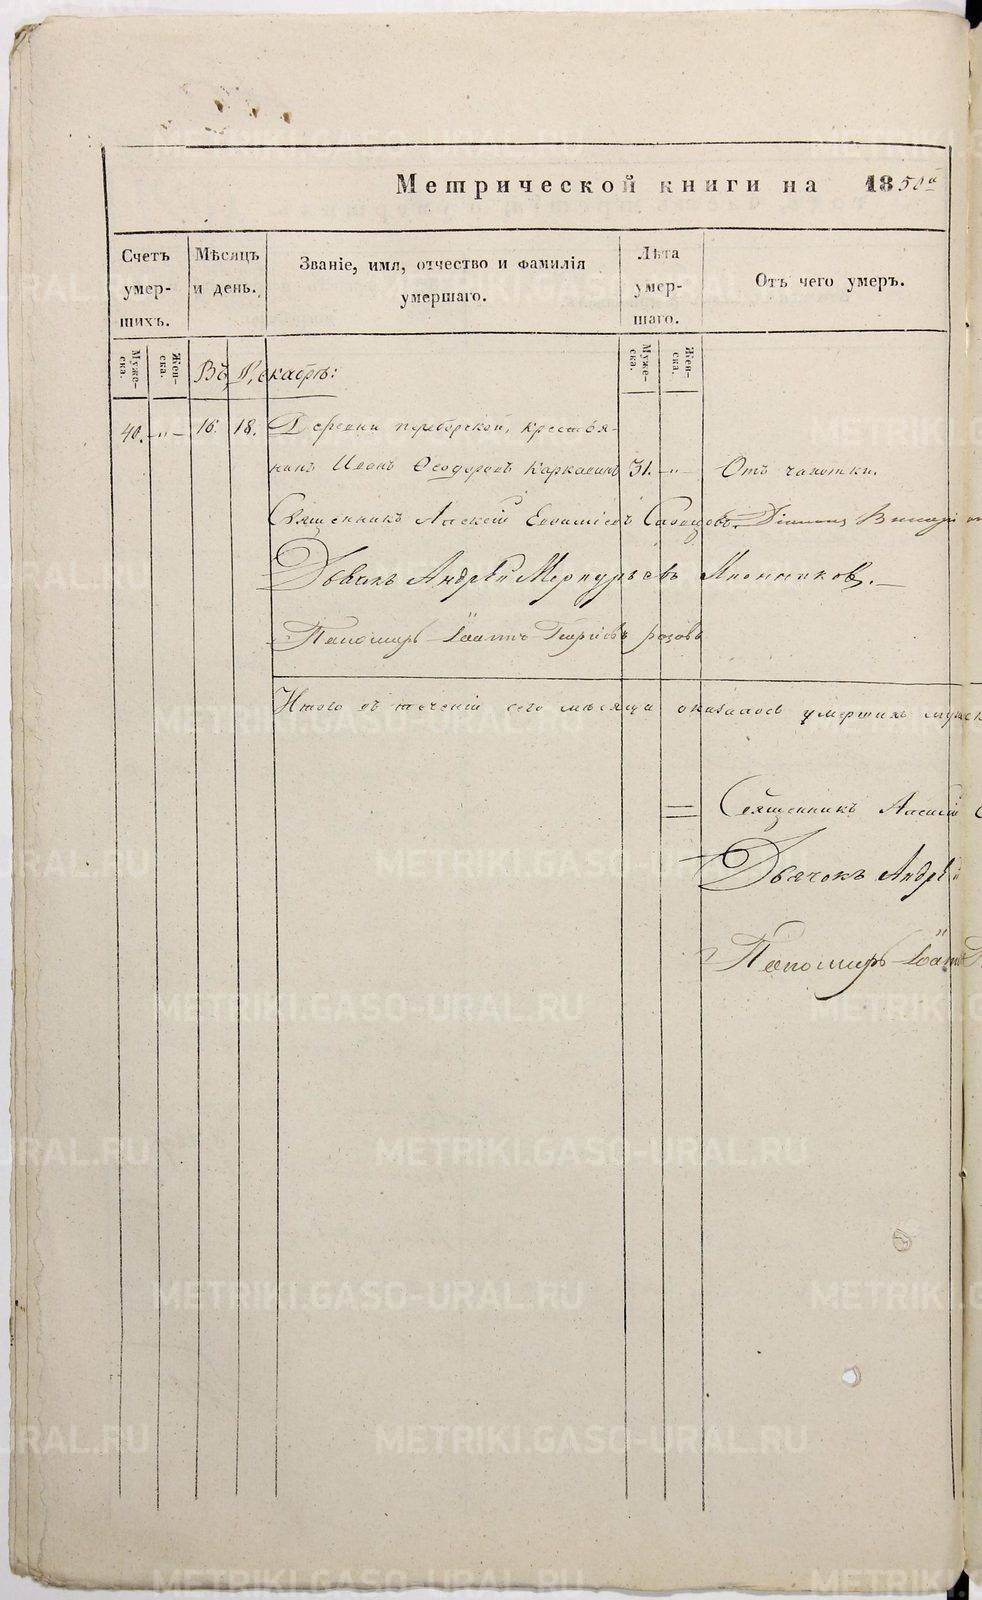 Метрической книги на 1850й
Счетъ умер- шихъ.
Мѣсяцъ и день.
Званіе, имя, отчество и фамилія умершаго.
Лѣта умер- шаго.
Отъ чего умеръ.
Муже- ска.
Жен- ска.
Муже- ска.
Жен- ска.
Въ Декабрѣ:
40. „ 16. 18. Деревни переборской, крестья-
нинъ Иванъ Ѳеодоровъ 31. „ Отъ чахотки.
Священникъ Алексій Евѳиміевъ
Дьячокъ Андрей Меркурьевъ
Пономарь Іоаннъ Георгіевъ розовъ
Итого въ теченіи сего мѣсяца оказалось умершихъ
Священникъ Алексій
Дьячокъ Андрей
Пономарь Іоаннъ
METRIKI.GASO-URAL.RU